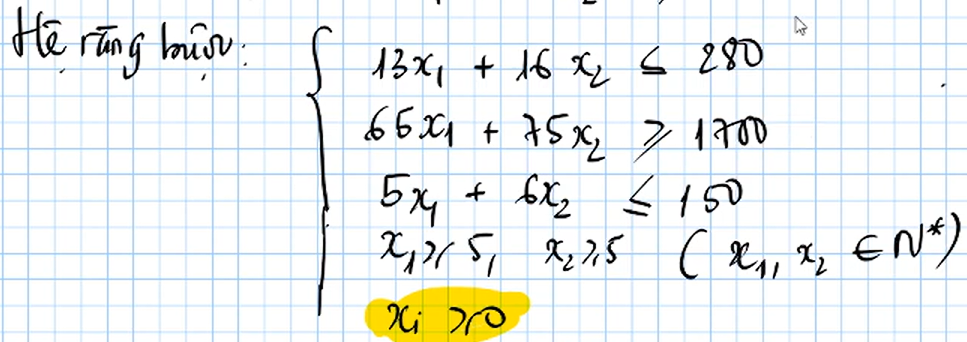 Hệ ràng buộc: 13x₁ + 16x₂ ≤ 280
65x₁ + 75x₂ ≥ 1700
5x₁ + 6x₂ ≤ 150
x₁ ≥ 5, x₂ ≥ 5 ( x₁, x₂ ∈ N*)
xᵢ ≥ 0